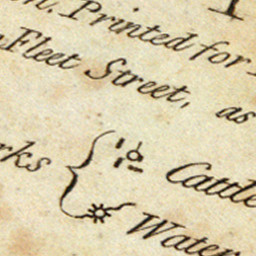 Printed for
Fleet Street, as
Cattle
Water